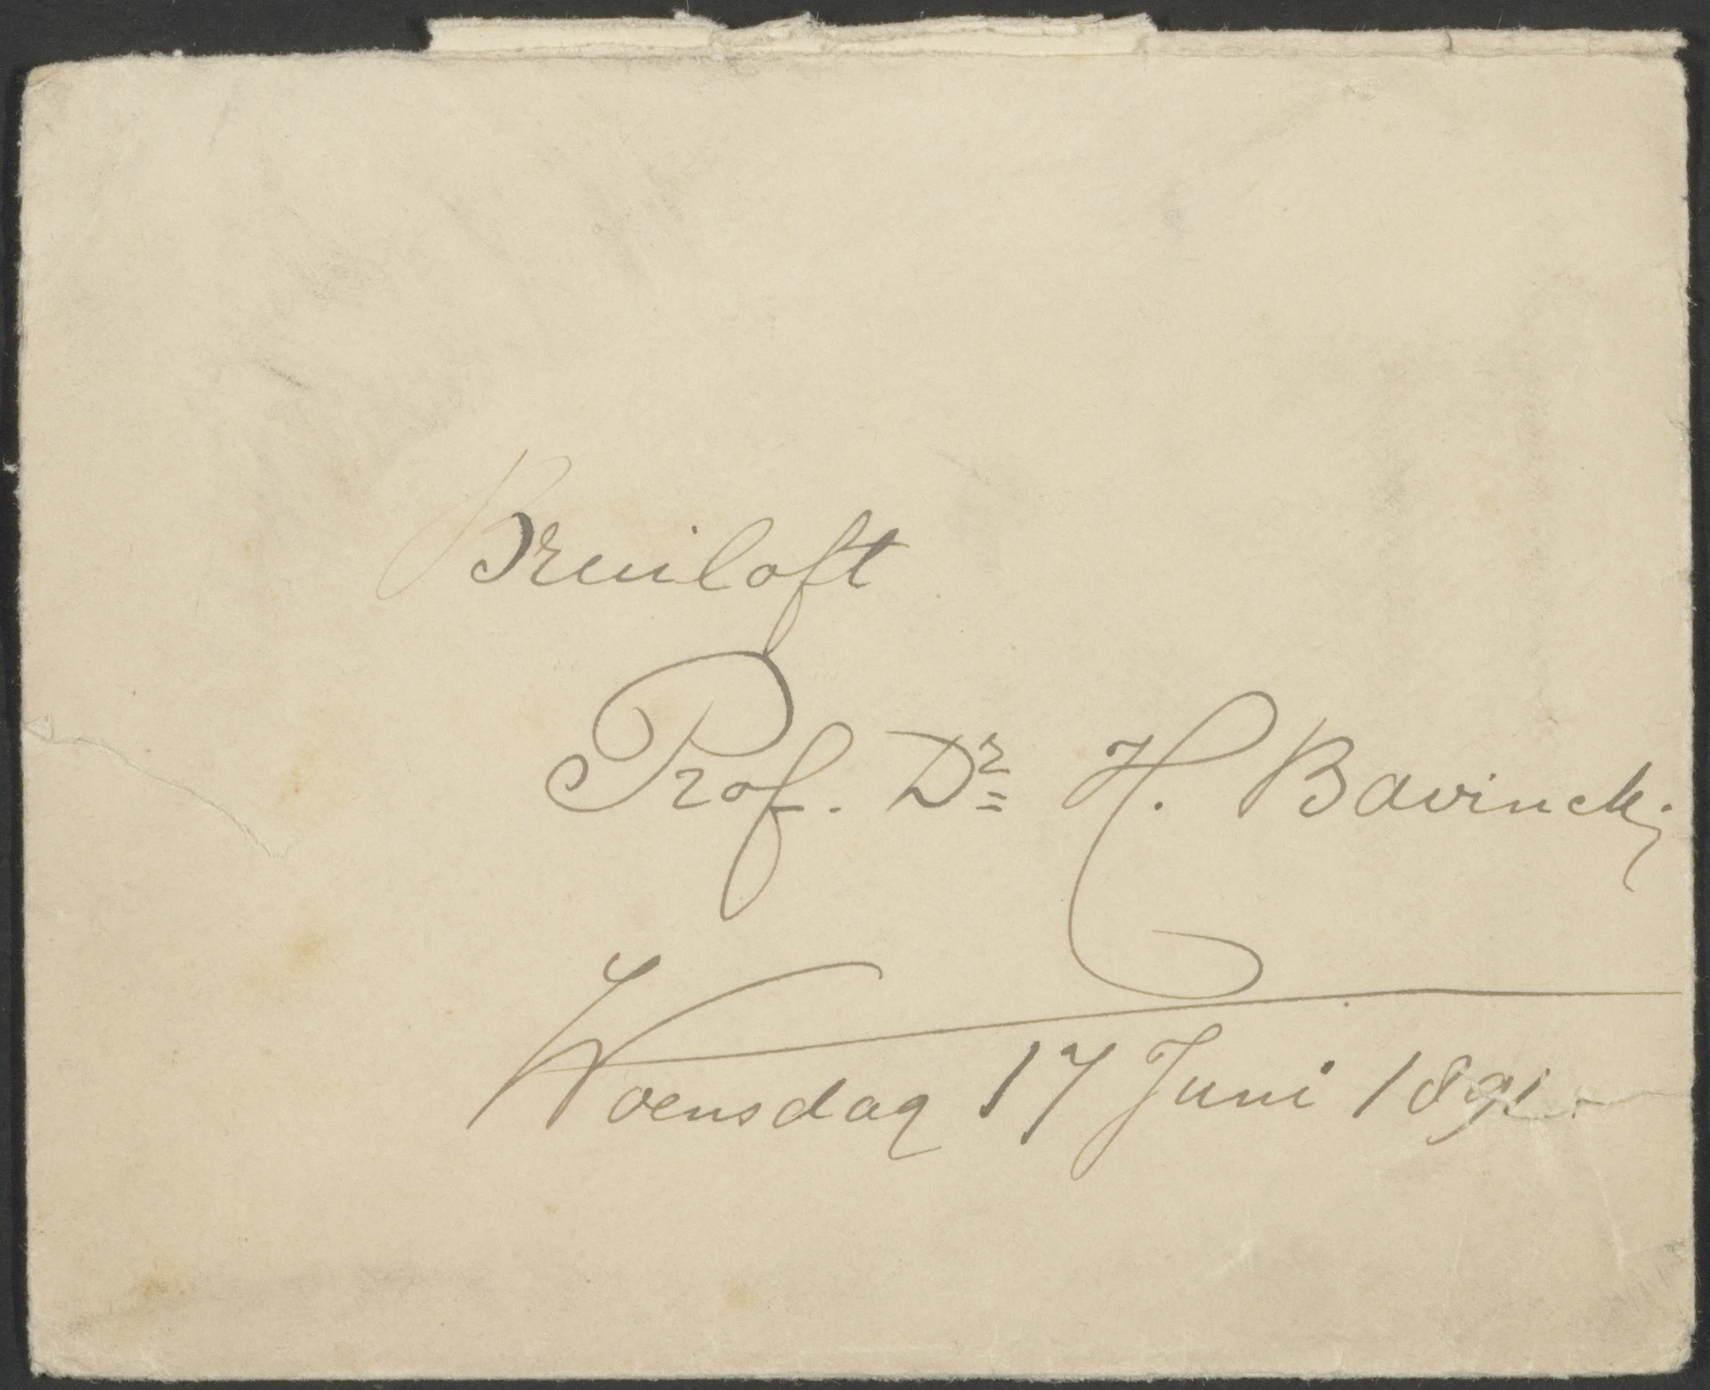 Bruiloft
Prof. Dr. H. Bavinck.
Woensdag 17 Juni 1891.